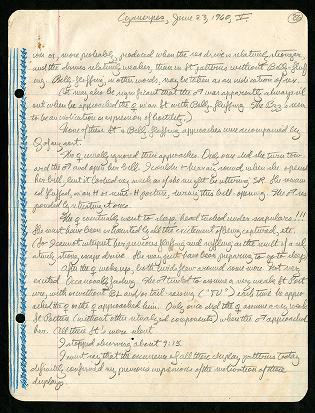 Cyanerpes, June 23, 1960, V.
ive or more probably, produced when the sex drive is relatively stronger
and the drives relatively weaker, than in St patterns without Belly-fluff-
ing. Belly-fluffing, in other words, may be taken as an indication of sex.
(It may also be significant that the ♂ was apparently always sil-
ent when he approached the ♀ in an St with Belly-fluffing. The may seem
to be an indication or expression of hostility.)
None of these St + Belly-fluffing approaches were accompanied by
of any sort.
The ♀ usually ignored these approaches. Only once did she turn tow-
ard the ♂ and open her bill. I couldn't hear any sound when she opened
her bill, but it looked very much as if she might be uttering SR. She remain-
ed fluffed, in an H or semi-H posture, during this bill-opening. The ♂ res-
ponded by retreating at once.
The ♀ eventually went to sleep, head tucked under scapulars!!!
She must have been exhausted by all the excitement of being captured, etc.
(So I cannot interpret her previous fluffing and ruffling as the result of a rel-
atively strong escape drive. She may just have been preparing to go to sleep.)
After the ♀ woke up, both birds flew around some more. Not very
excited. Occasionally feeding. The ♂ tended to assume a very weak St Post-
ure, without Bill-up and/or tail-raising ("TU") each time he appro-
ached the ♀ or the ♀ approached him. Only once did the ♀ assume a very weak
St Posture (without other ritualized components) when the ♂ approached
her. (All these St's were silent.
I stopped observing about 9:15.
I must say that the occurrence of all these display patterns today
definitely confirmed my previous impressions of the motivation of these
displays.